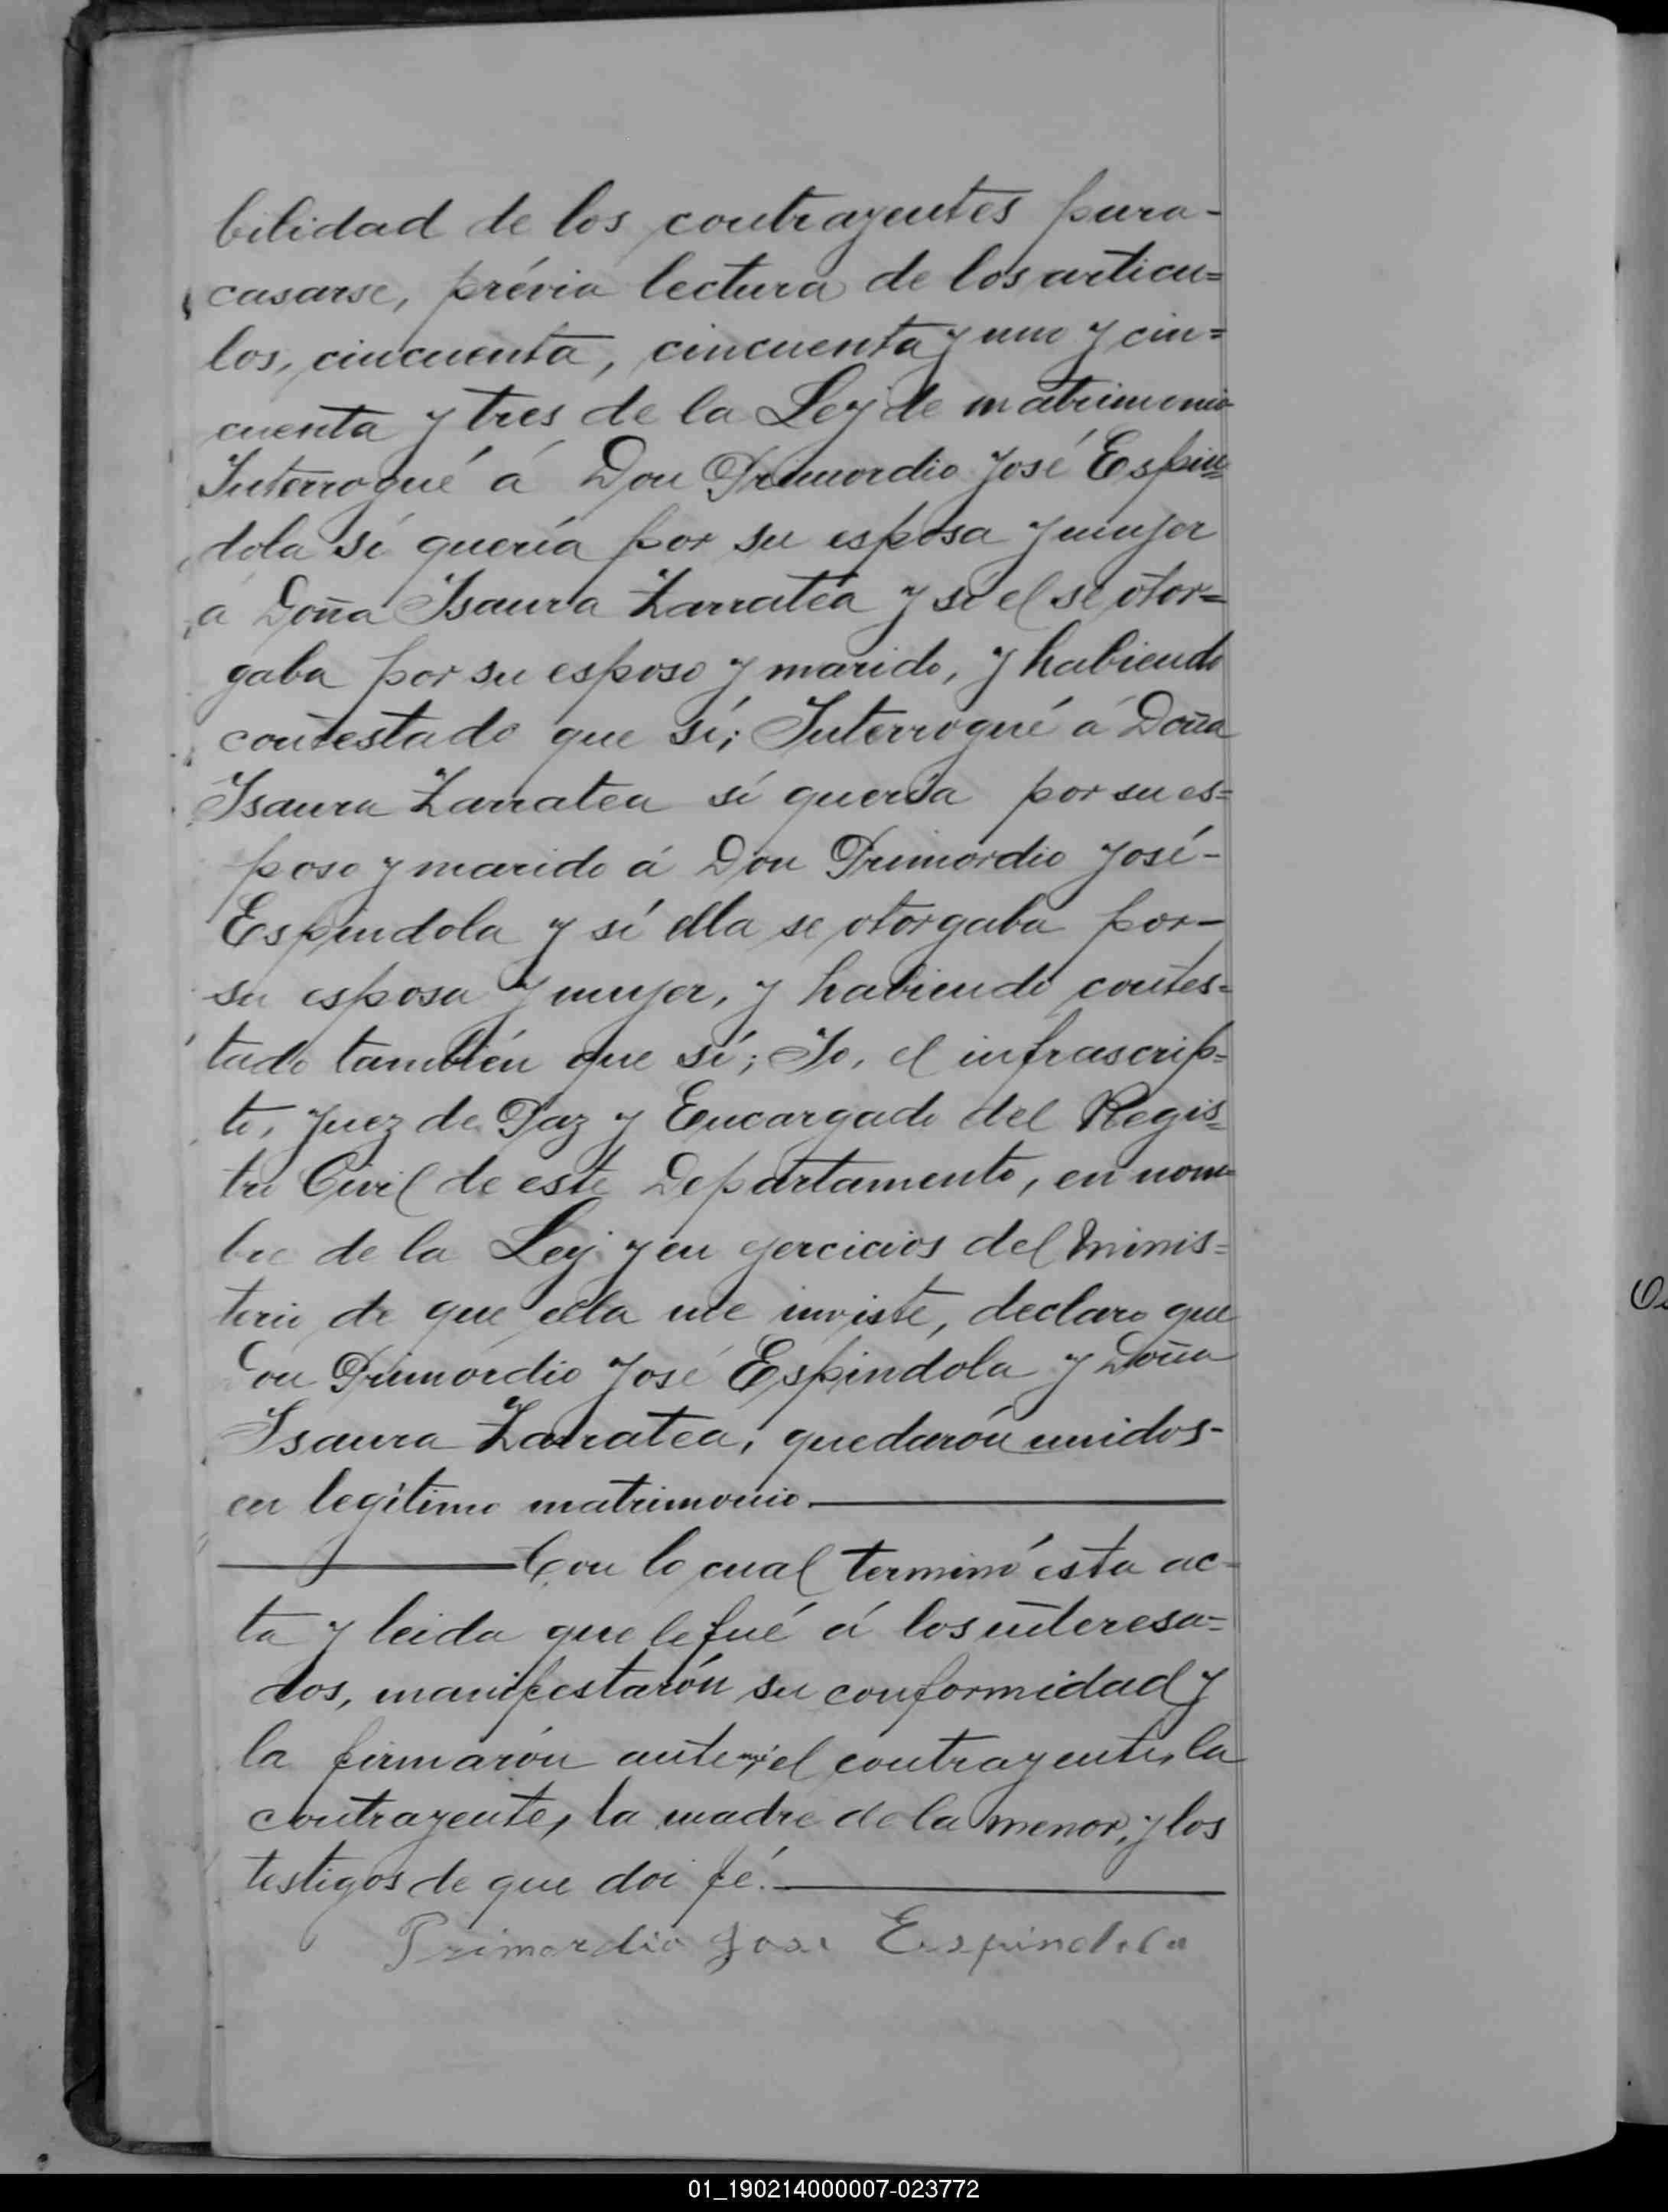 bilidad de los contrayentes para-
casarse, prévia lectura de los articu=
los, cincuenta, cincuenta y uno y cin=
cuenta y tres de la Ley de matrimonio
Interrogué á Don Primordio José Espin=
dola sí quería por su esposa y mujer
á Doña Isaura Zarratéa y sí el se otor=
gaba por su esposo y marido, y habiendo
contestado que sí; Interrogué á Doña
Isaura Zarratea sí quería por su es=
poso y marido á Don Primordio José-
Espindola y sí ella se otorgaba por-
su esposa y mujer, y habiendo contes=
tado también que sí; Yo, el infrascrip=
to, Juez de Paz y Encargado del Regis=
tro Civil de este Departamento, en nom=
bre de la Ley y en ejercicios del Minis=
terio de que ella me inviste, declaro que
Don Primordio José Espindola y Doña
Isaura Zarratea, quedarón unidos-
en legítimo matrimonio.
Con lo cual terminó esta ac-
ta y leida que le fué á los interesa=
dos, manifestarón su conformidad y
la firmarón ante mí el contrayente, la
contrayente, la madre de la menor, y los
testigos de que doi fé.
Primordio José Espindola
01_190214000007-023772